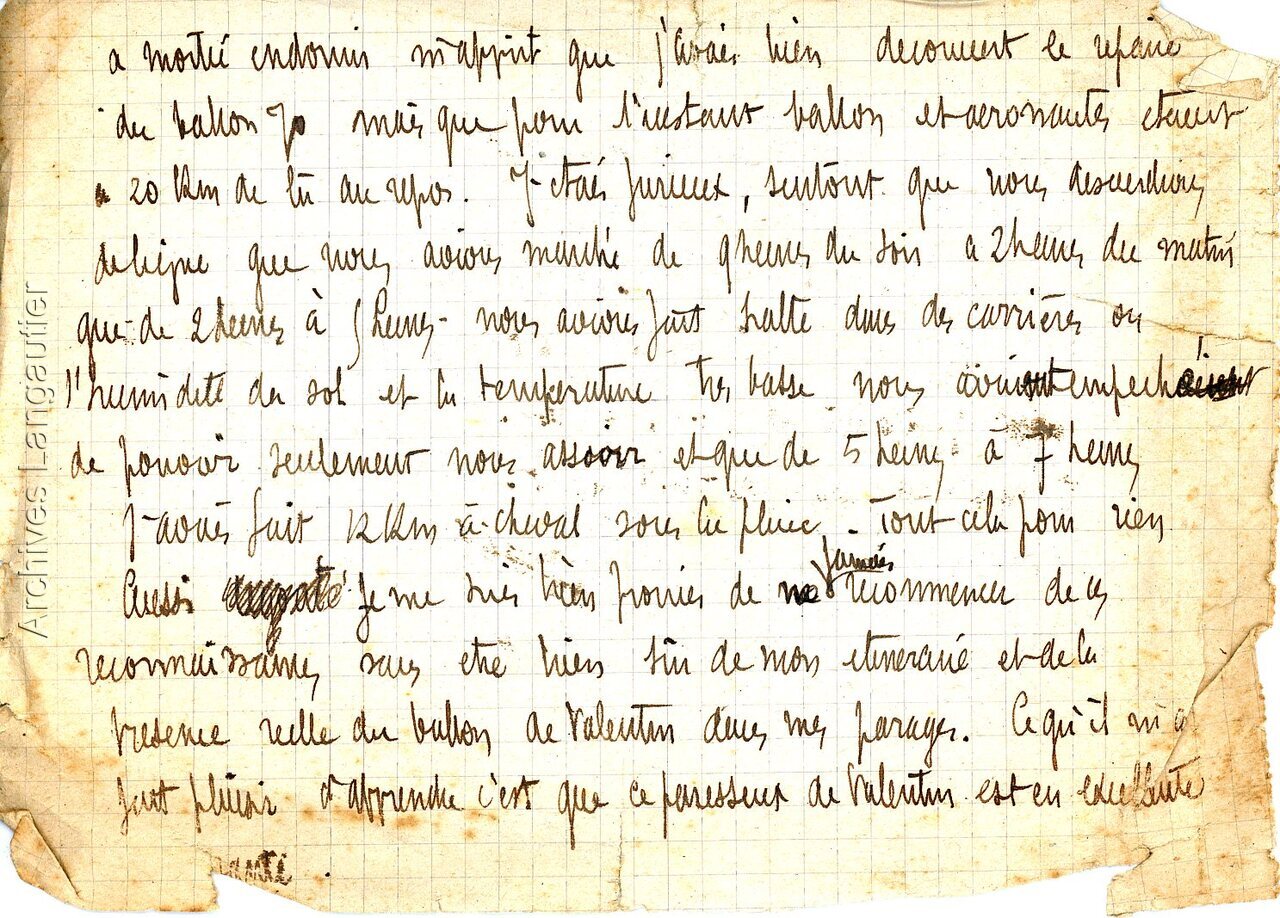 a moitié endormis m'apprit que j'avais bien decouvert le repaire
du ballon 70 mais que pour l'instant ballon et aeronautes etaient
a 20 Km de là au repos. J'étais furieux, surtout que nous descendions
de ligne que nous avions marché de 9 heures du soir a 2 heures du matin
que de 2 heures à 5 heures nous avions fait halte dans des carrières ou
l'humidité du sol et la temperature tres basse nous avaient empeché
de pouvoir seulement nous assoir et que de 5 heures à 7 heures
j'avais fait 12 Km à cheval sous la pluie. Tout cela pour rien
Aussi je me suis bien promis de ne jamais recommencer de ces
reconnaissances sans etre bien sûr de mon itineraire et de la
presence reelle du ballon de Valentin dans mes parages. Ce qu'il m'a
fait plaisir d'apprendre c'est que ce paresseux de Valentin est en excellente
santé
Archives Langautier